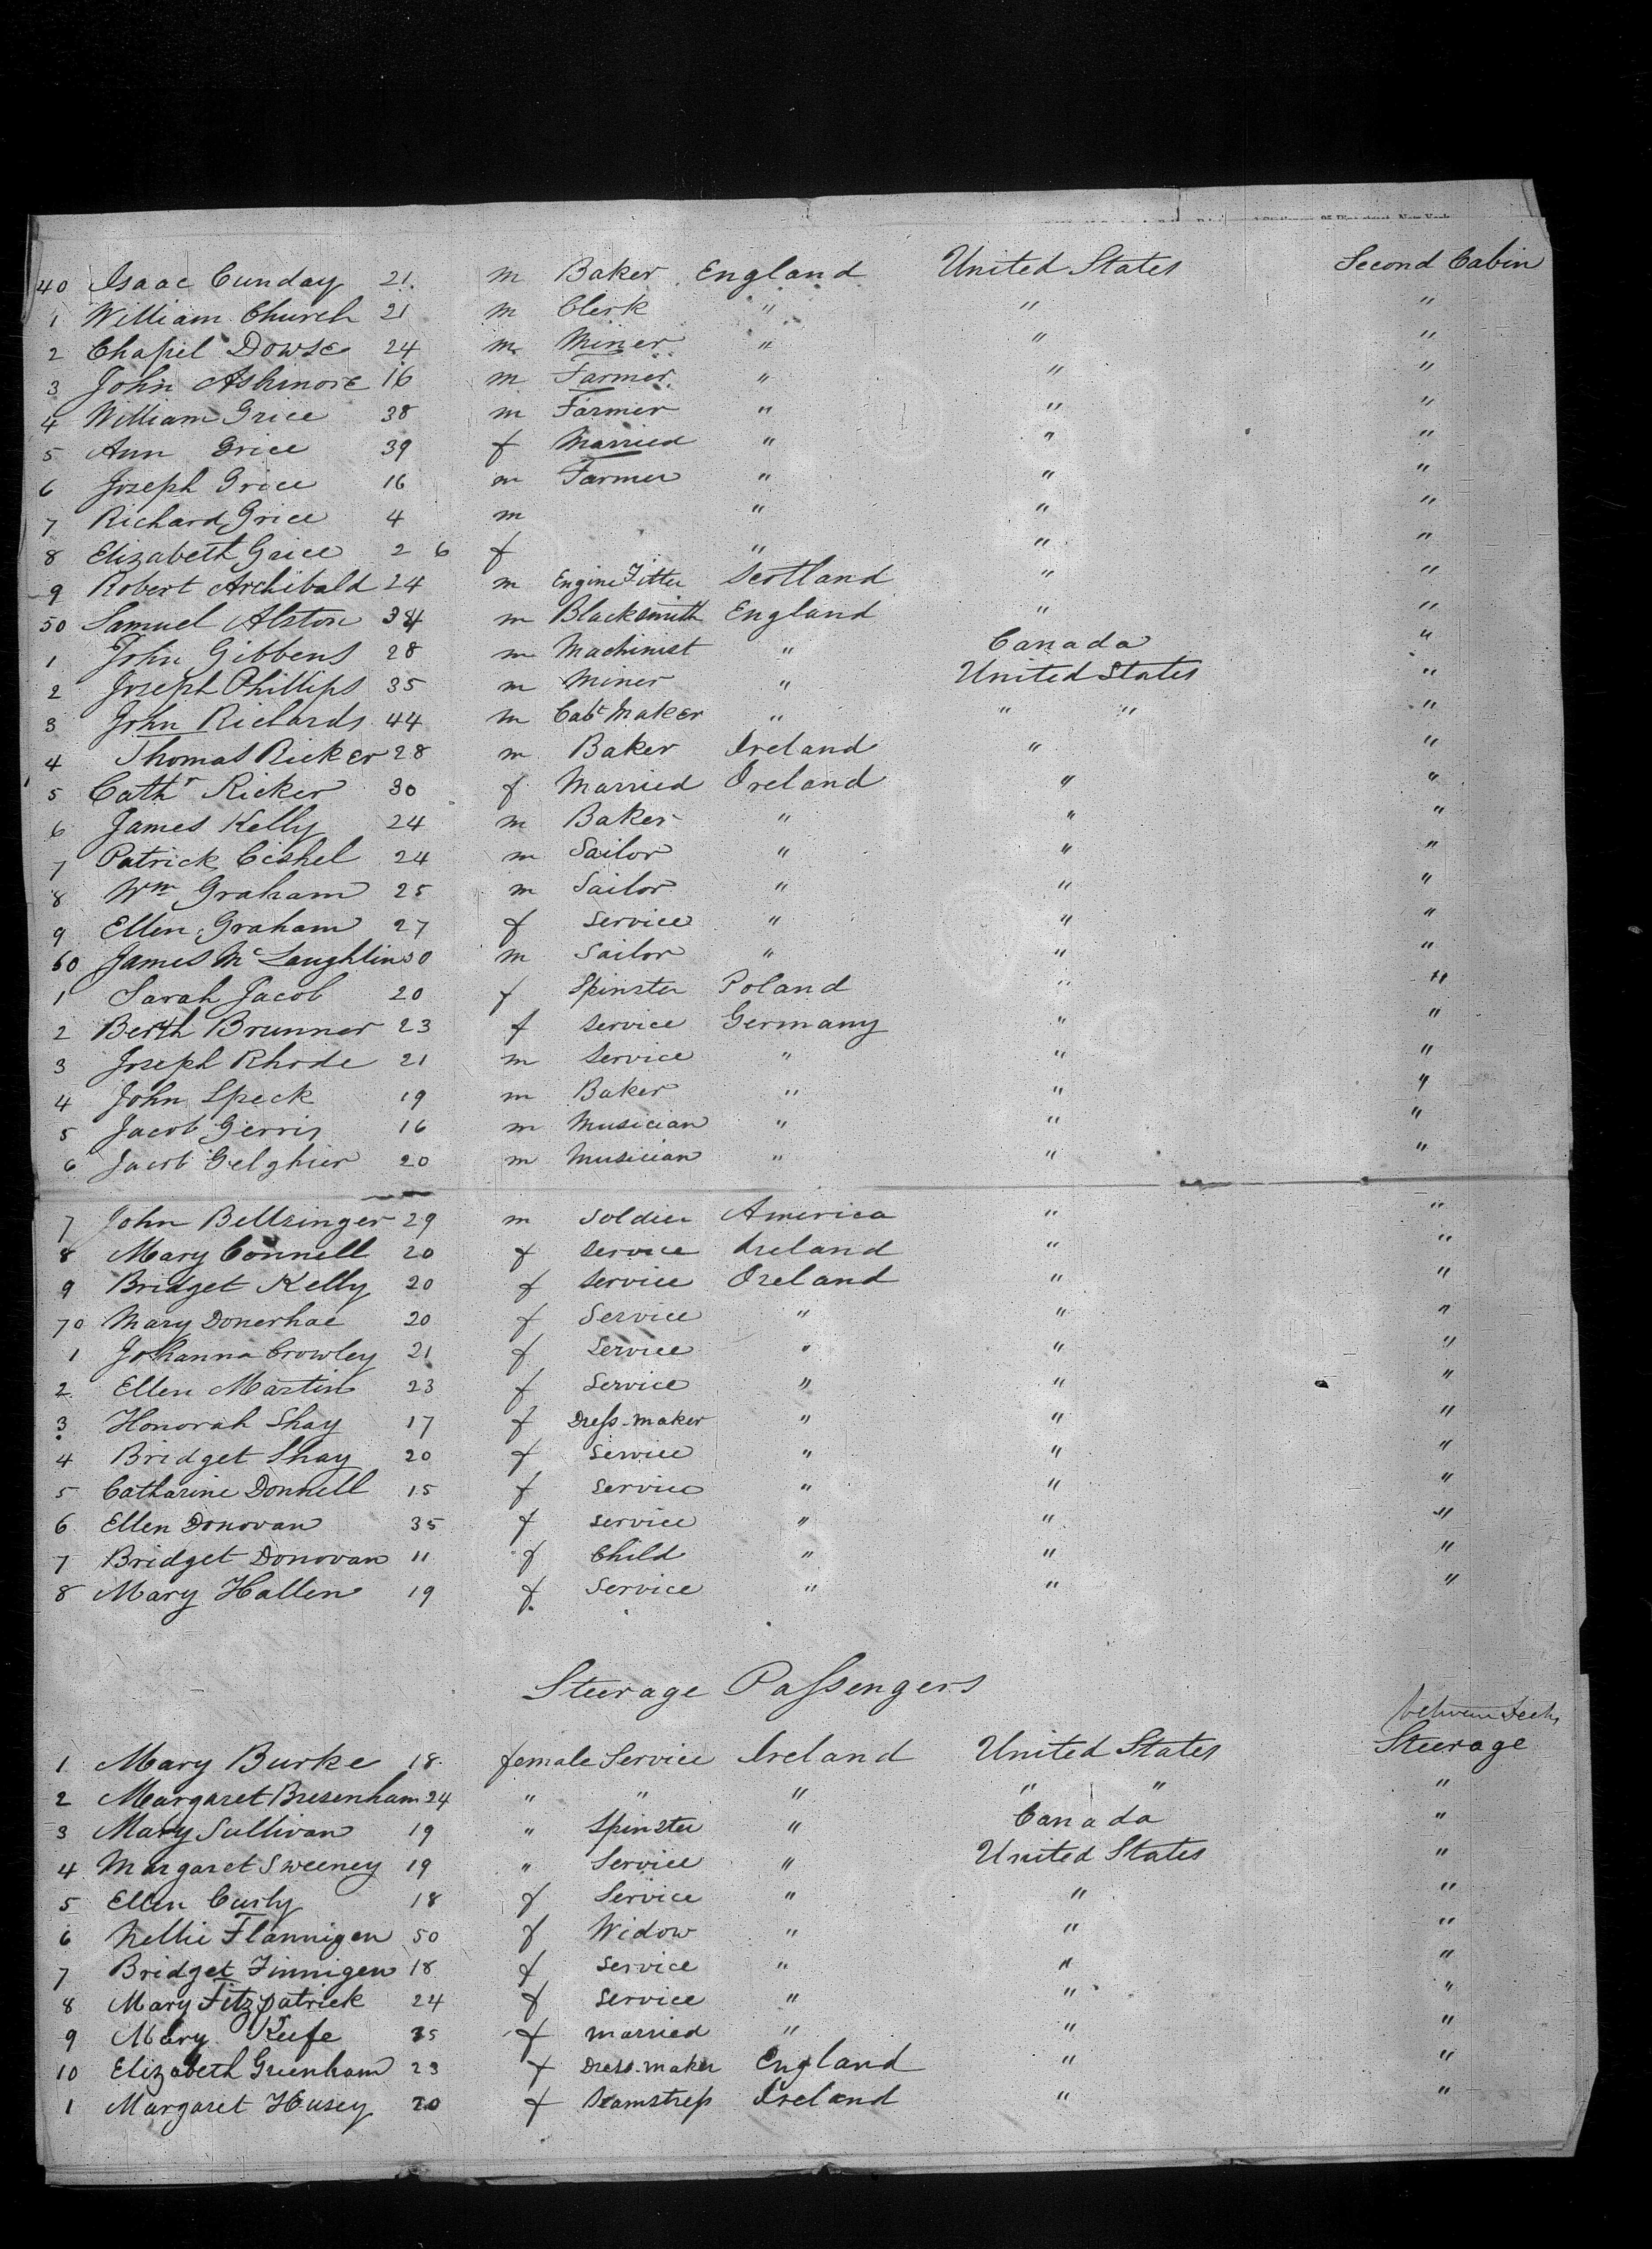 40 Isaac Cunday 21 m Baker England United States Second Cabin
1 William Church 21 m Clerk " " "
2 Chapil Dowse 24 m Miner " " "
3 John Ashmore 16 m Farmer " " "
4 William Grice 38 m Farmer " " "
5 Ann Grice 39 f Married " " "
6 Joseph Grice 16 m Farmer " " "
7 Richard Grice 4 m " " "
8 Elizabeth Grice 2 6 f " " "
9 Robert Archibald 24 m Engine Fitter Scotland " "
50 Samuel Alston 34 m Blacksmith England " "
1 John Gibbens 28 m Machinist " Canada "
2 Joseph Phillips 35 m Miner " United States "
3 John Richards 44 m Cabt Maker " " " "
4 Thomas Ricker 28 m Baker Ireland " "
5 Cathr Ricker 30 f Married Ireland " "
6 James Kelly 24 m Baker " " "
7 Patrick Cishel 24 m Sailor " " "
8 Wm Graham 25 m Sailor " " "
9 Ellen Graham 27 f Service " " "
60 James McLaughlin 30 m Sailor " " "
1 Sarah Jacob 20 f Spinster Poland " "
2 Berth Brunner 23 f Service Germany " "
3 Joseph Rhode 21 m Service " " "
4 John Speck 19 m Baker " " "
5 Jacob Gerris 16 m Musician " " "
6 Jacob Gelghier 20 m Musician " " "
7 John Bellzinger 29 m Soldier America " "
8 Mary Connell 20 f Service Ireland " "
9 Bridget Kelly 20 f Service Ireland " "
70 Mary Donerhae 20 f Service " " "
1 Johanna Crowley 21 f Service " " "
2 Ellen Martin 23 f Service " " "
3 Honorah Shay 17 f Dress-maker " " "
4 Bridget Shay 20 f Service " " "
5 Catharine Donnell 15 f Service " " "
6 Ellen Donovan 35 f Service " " "
7 Bridget Donovan 11 f Child " " "
8 Mary Hallen 19 f Service " " "
Steerage Passengers
between decks
1 Mary Burke 18 female Service Ireland United States Steerage
2 Margaret Bresenham 24 " " " " " "
3 Mary Sullivan 19 " Spinster " Canada "
4 Margaret Sweeney 19 " Service " United States "
5 Ellen Curly 18 f Service " " "
6 Nellie Flannigen 50 f Widow " " "
7 Bridget Finnigen 18 f Service " " "
8 Mary Fitzpatrick 24 f Service " " "
9 Mary Keefe 35 f married " " "
10 Elizabeth Greenham 23 f Dress-maker England " "
1 Margaret Husey 20 f Seamstress Ireland " "